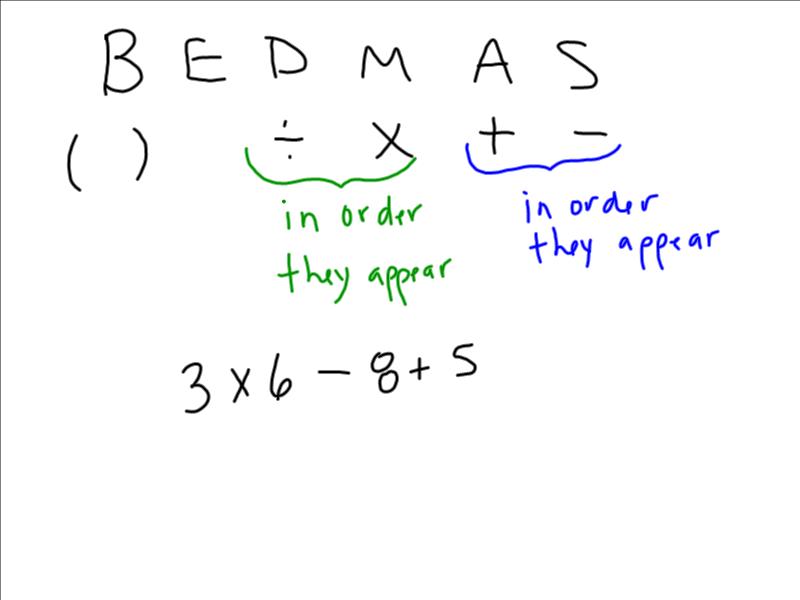 B E D M A S
( ) ÷ × + −
in order
they appear
in order
they appear
3 × 6 − 8 + 5